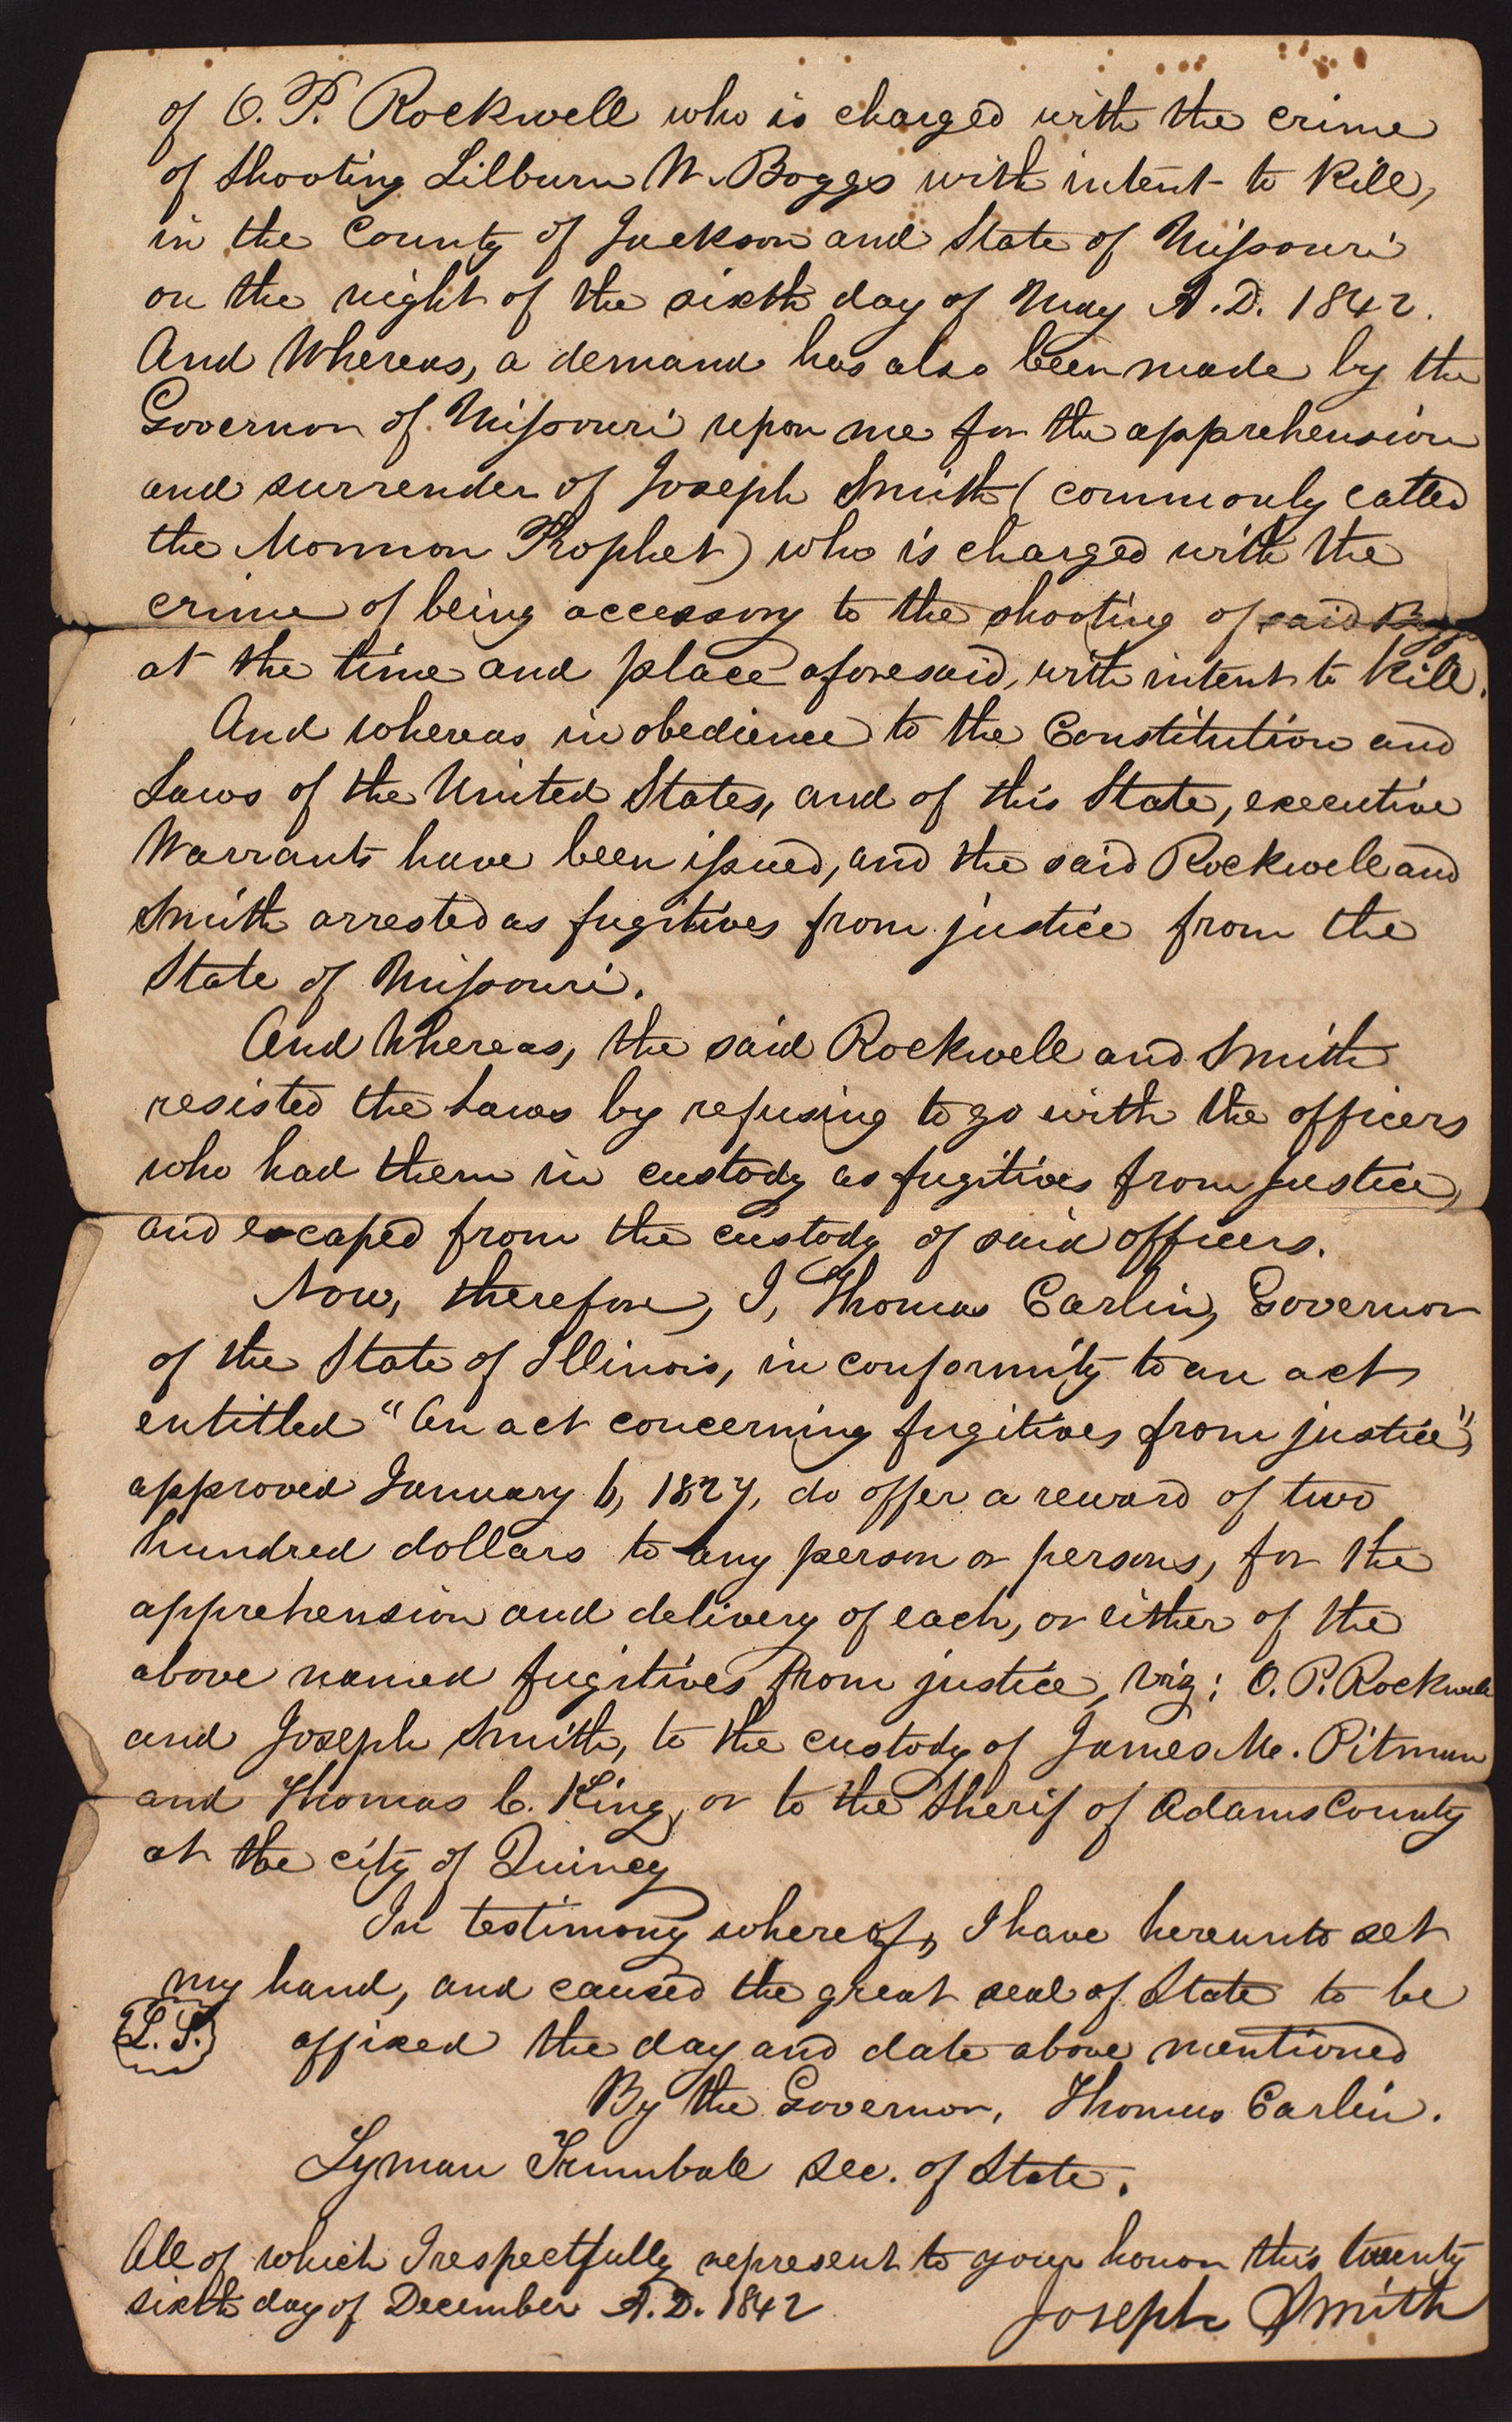 of O. P. Rockwell who is charged with the crime
of shooting Lilburn W. Boggs with intent to kill,
in the County of Jackson and State of Missouri
on the night of the sixth day of May A.D. 1842.
And Whereas, a demand has also been made by the
Governor of Missouri upon me for the apprehension
and surrender of Joseph Smith (commonly called
the Mormon Prophet) who is charged with the
crime of being accessory to the shooting of said Boggs
at the time and place aforesaid, with intent to kill.
And whereas in obedience to the Constitution and
Laws of the United States, and of this State, executive
Warrants have been issued, and the said Rockwell and
Smith arrested as fugitives from justice from the
State of Missouri.
And Whereas, the said Rockwell and Smith
resisted the Laws by refusing to go with the officers
who had them in custody as fugitives from justice,
and escaped from the custody of said officers.
Now, therefore, I, Thomas Carlin, Governor
of the State of Illinois, in conformity to an act
entitled "An act concerning fugitives from justice",
approved January 6, 1827, do offer a reward of two
hundred dollars to any person or persons, for the
apprehension and delivery of each, or either of the
above named fugitives from justice, viz; O. P. Rockwell
and Joseph Smith, to the custody of James M. Pitman
and Thomas C. King, or to the Sherif of Adams County
at the city of Quincy
In testimony whereof, I have hereunto set
my hand, and caused the great seal of State to be
L. S. affixed the day and date above mentioned
By the Governor, Thomas Carlin.
Lyman Trumball Sec. of State.
All of which I respectfully represent to your honor this twenty
sixth day of December A.D. 1842
Joseph Smith